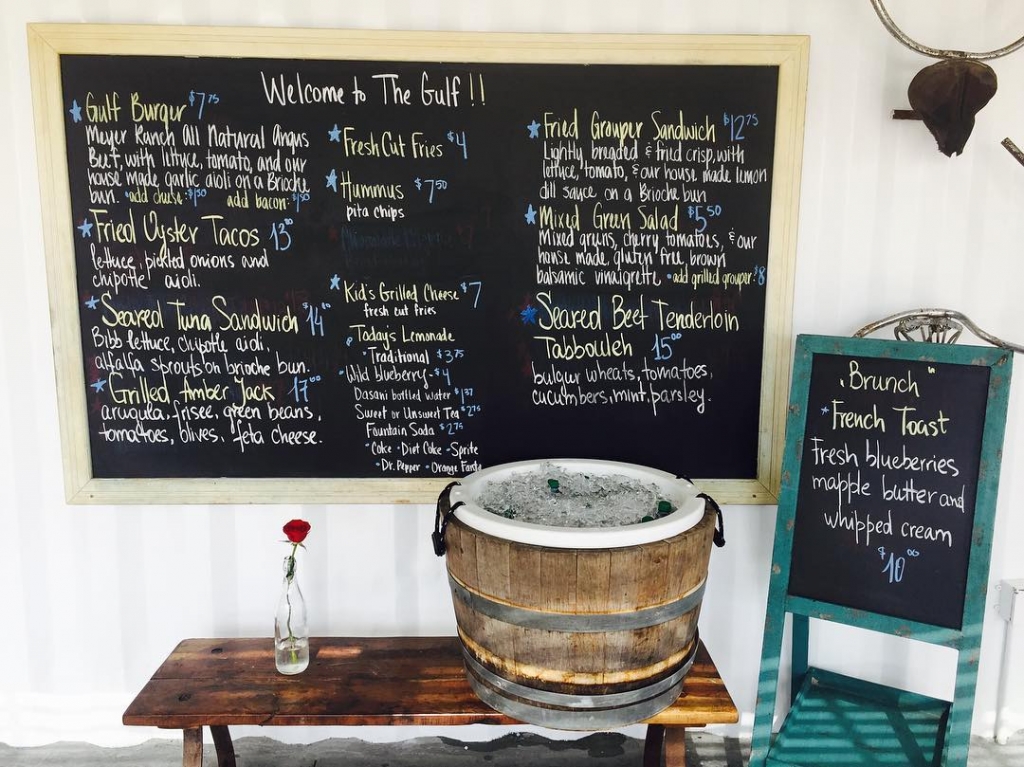 Welcome to The Gulf !!
Gulf Burger $7.75
Meyer Ranch All Natural Angus
Beef, with lettuce, tomato, and our
house made garlic aioli on a Brioche
bun. add cheese: $1.50 add bacon: $1.50
Fried Oyster Tacos 13.00
lettuce, pickled onions and
chipotle aioli.
Seared Tuna Sandwich $14.00
Bibb lettuce, chipotle aioli,
alfalfa sprouts on brioche bun.
Grilled Amber Jack 17.00
arugula, frisee, green beans,
tomatoes, olives, feta cheese.
Fresh Cut Fries $4
Hummus $7.50
pita chips
Kid's Grilled Cheese $7
fresh cut fries
Today's Lemonade
Traditional $3.75
Wild blueberry - $4
Dasani bottled water $1.37
Sweet or Unsweet Tea $2.75
Fountain Soda $2.75
Coke Diet Coke Sprite
Dr. Pepper Orange Fanta
Fried Grouper Sandwich $12.75
Lightly, breaded & fried crisp, with
lettuce, tomato, & our house made lemon
dill sauce on a Brioche bun
Mixed Green Salad $5.50
Mixed greens, cherry tomatoes, & our
house made, gluten free, brown
balsamic vinaigrette. add grilled grouper: $8
Seared Beef Tenderloin
Tabbouleh 15.00
bulgur wheats, tomatoes,
cucumbers, mint, parsley.
"Brunch"
French Toast
Fresh blueberries
mapple butter and
whipped cream
$10.00